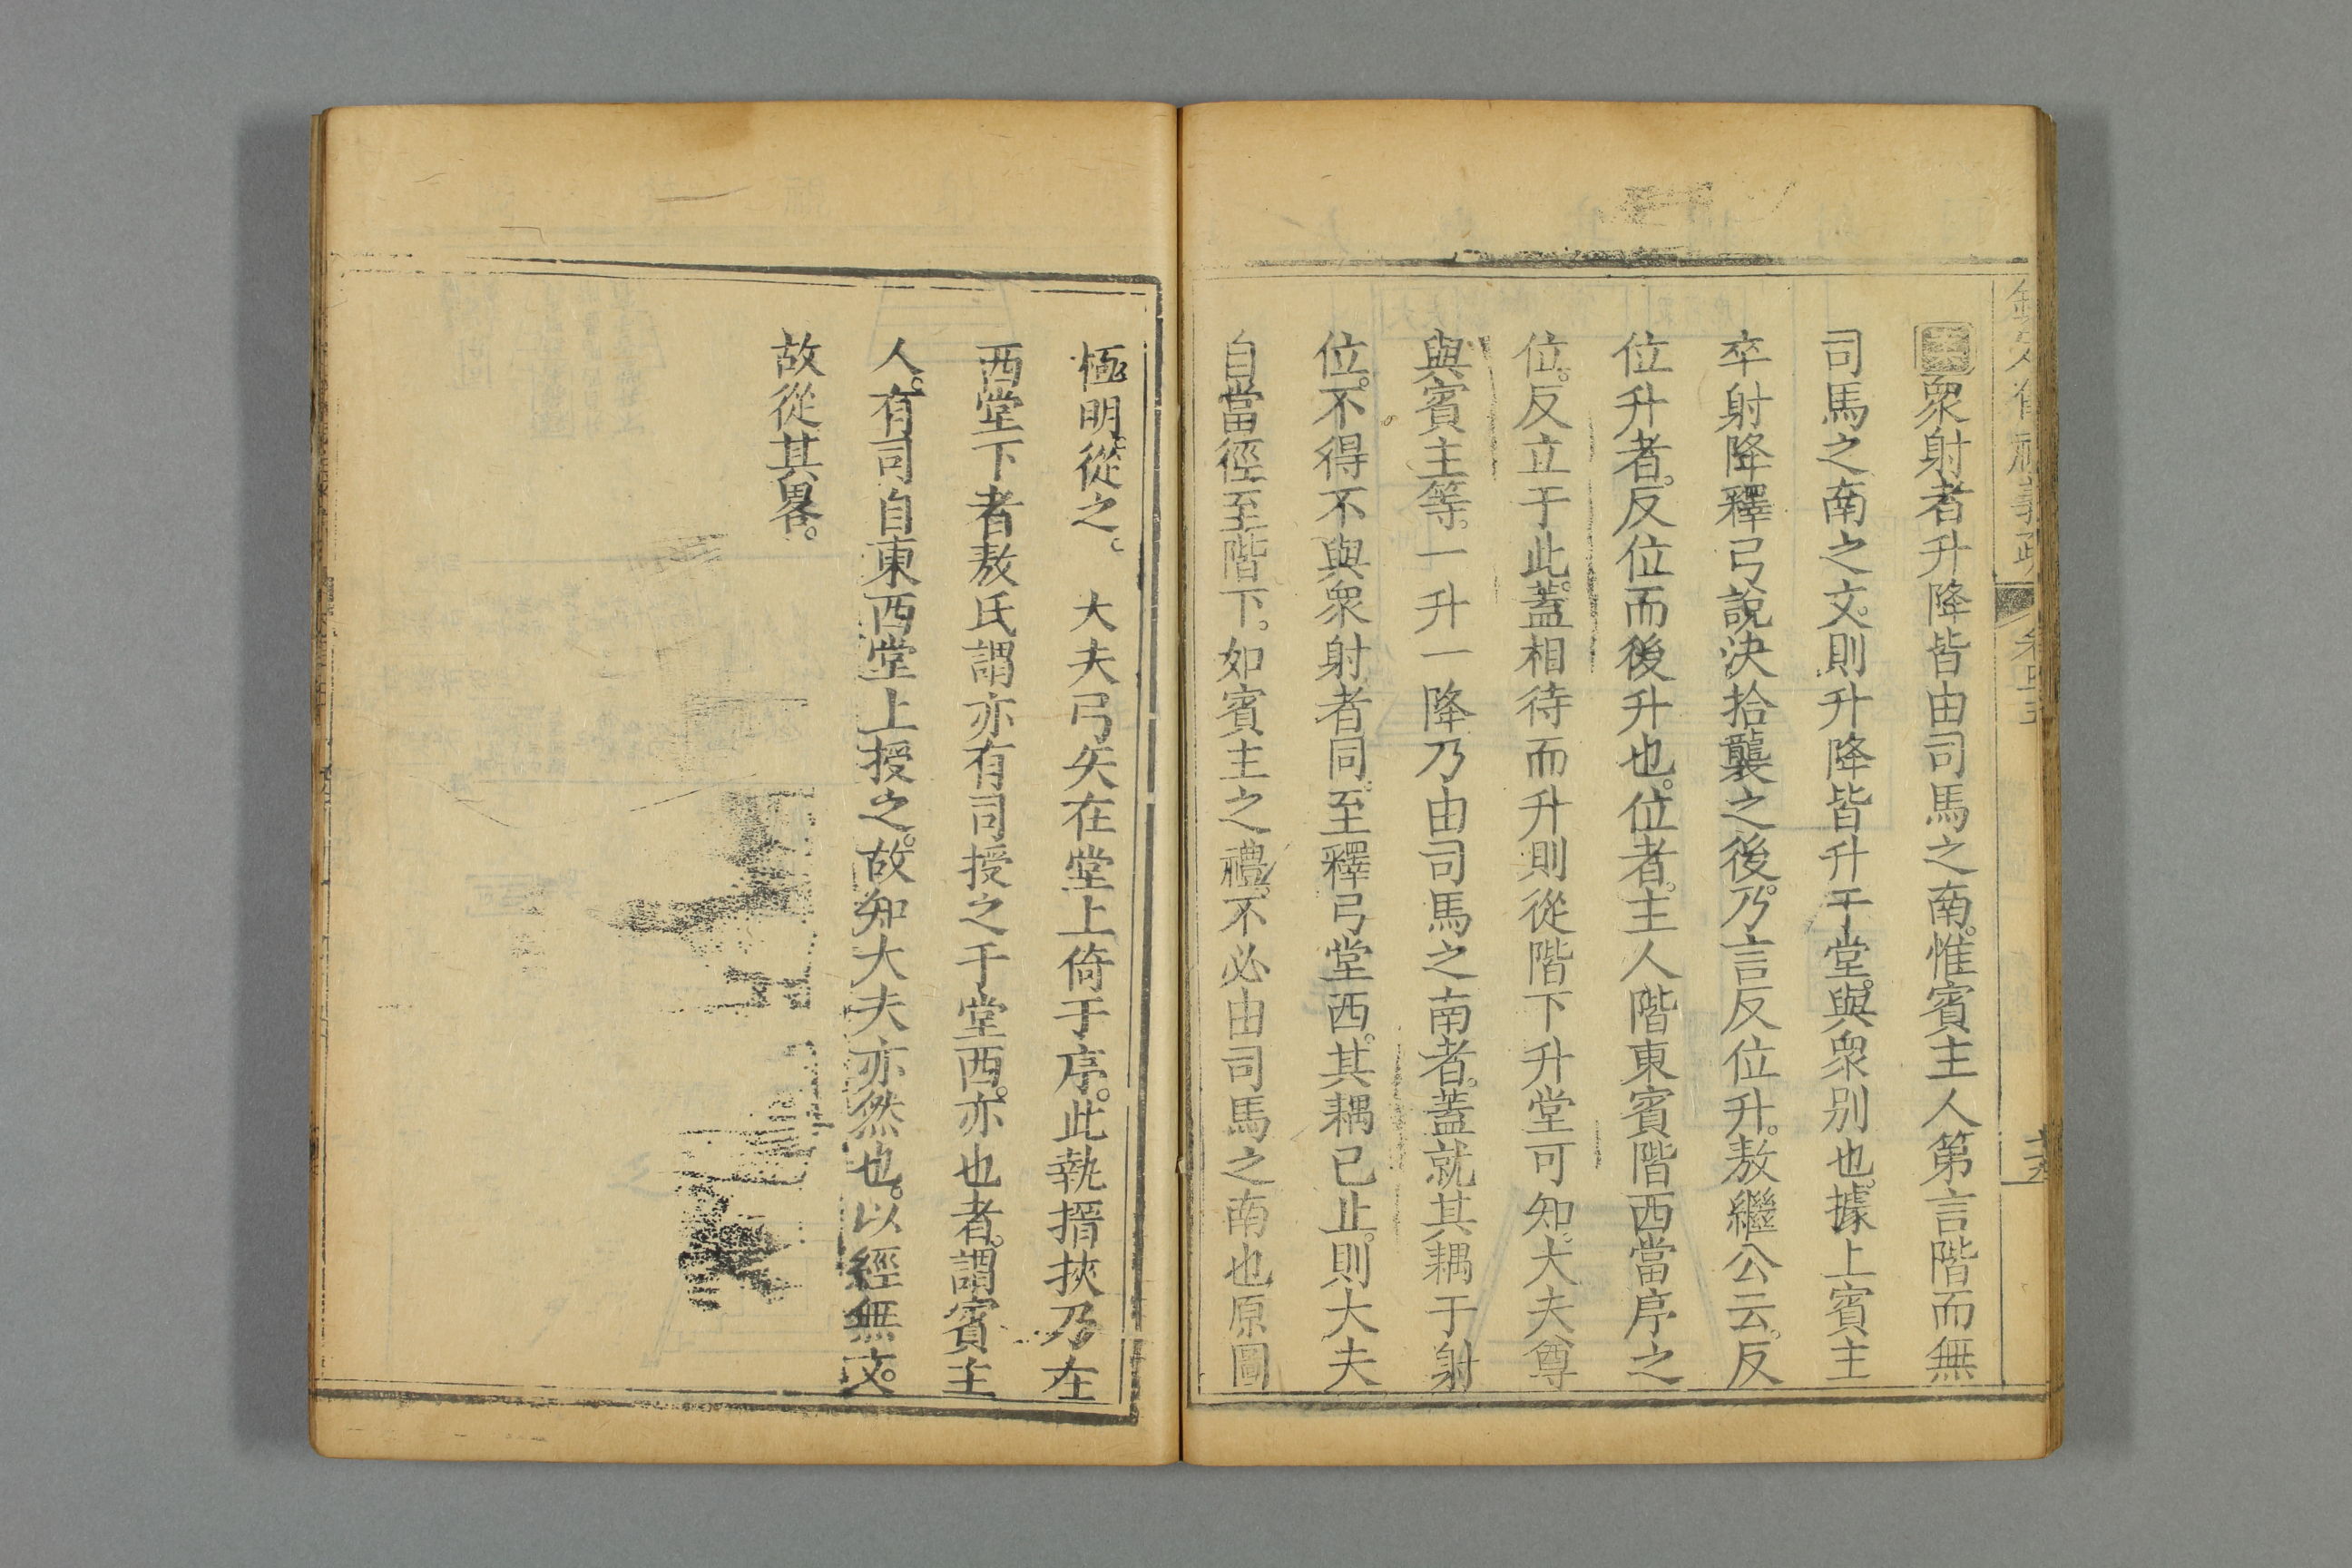 欽定儀禮義疏 卷四十五
衆射者升降皆由司馬之南。惟賓主人第言階而無
司馬之南之文。則升降皆升于堂。與衆別也。據上賓主
卒射降釋弓說決拾襲之後。乃言反位升。敖繼公云。反
位升者。反位而後升也。位者。主人階東賓階西當序之
位。反立于此。蓋相待而升則從階下升堂可知。大夫尊
與賓主等。一升一降乃由司馬之南者。蓋就其耦于射
位。不得不與衆射者同。至釋弓堂西。其耦已止。則大夫
自當徑至階下。如賓主之禮。不必由司馬之南也原圖
極明。從之。 大夫弓矢在堂上倚于序。此執搢挾乃在
西堂下者敖氏謂亦有司授之于堂西。亦也者。謂賓主
人。有司自東西堂上授之。故知大夫亦然也。以經無文。
故從其畧。